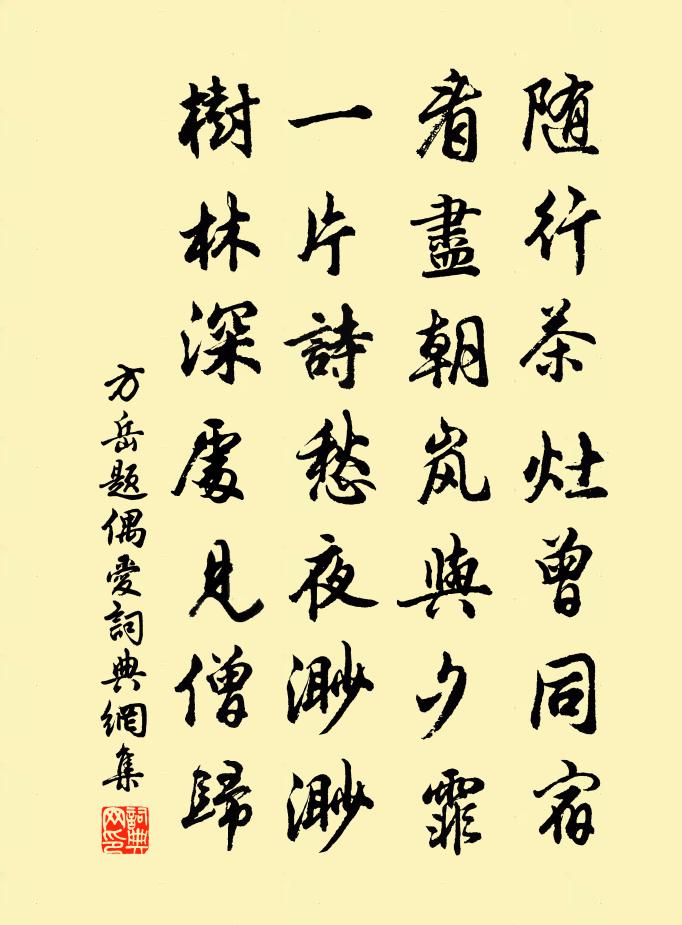 随行茶灶曾同宿
看盡朝岚與夕霏
一片詩愁夜渺渺
樹林深處見僧歸
方岳题偶愛詞典網集
詞典网印